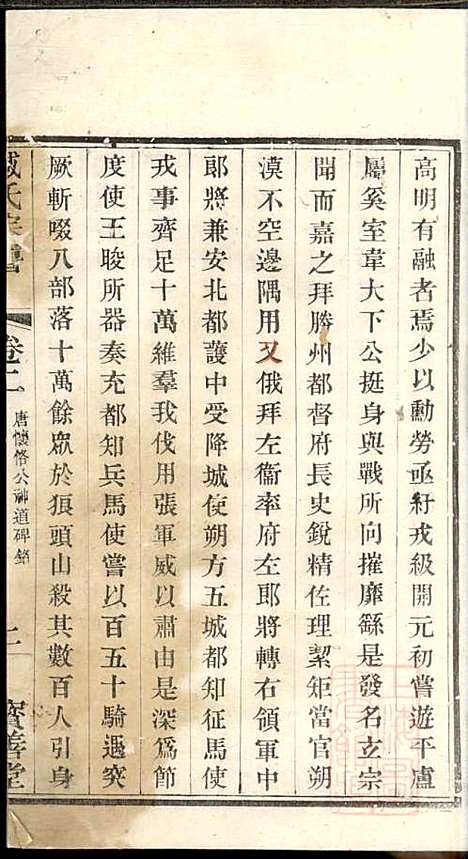 高明有融者焉少以勳勞亟紆戎級開元初嘗遊平盧
屬奚室韋大下公挺身與戰所向摧靡繇是發名玄宗
聞而嘉之拜勝州都督府長史銳精佐理絜矩當官朔
漠不空邊隅用乂俄拜左衞率府左郎將轉右領軍中
郞將兼安北都護中受降城使朔方五城都知征馬使
戎事齊足十萬維羣我伐用張軍威以肅由是深爲節
度使王晙所器奏充都知兵馬使嘗以百五十騎遇突
厥斬啜八部落十萬餘眾於狼頭山殺其數百人引身
臧氏宗譜
卷二
唐懷恪公神道碑銘
二
寳善堂